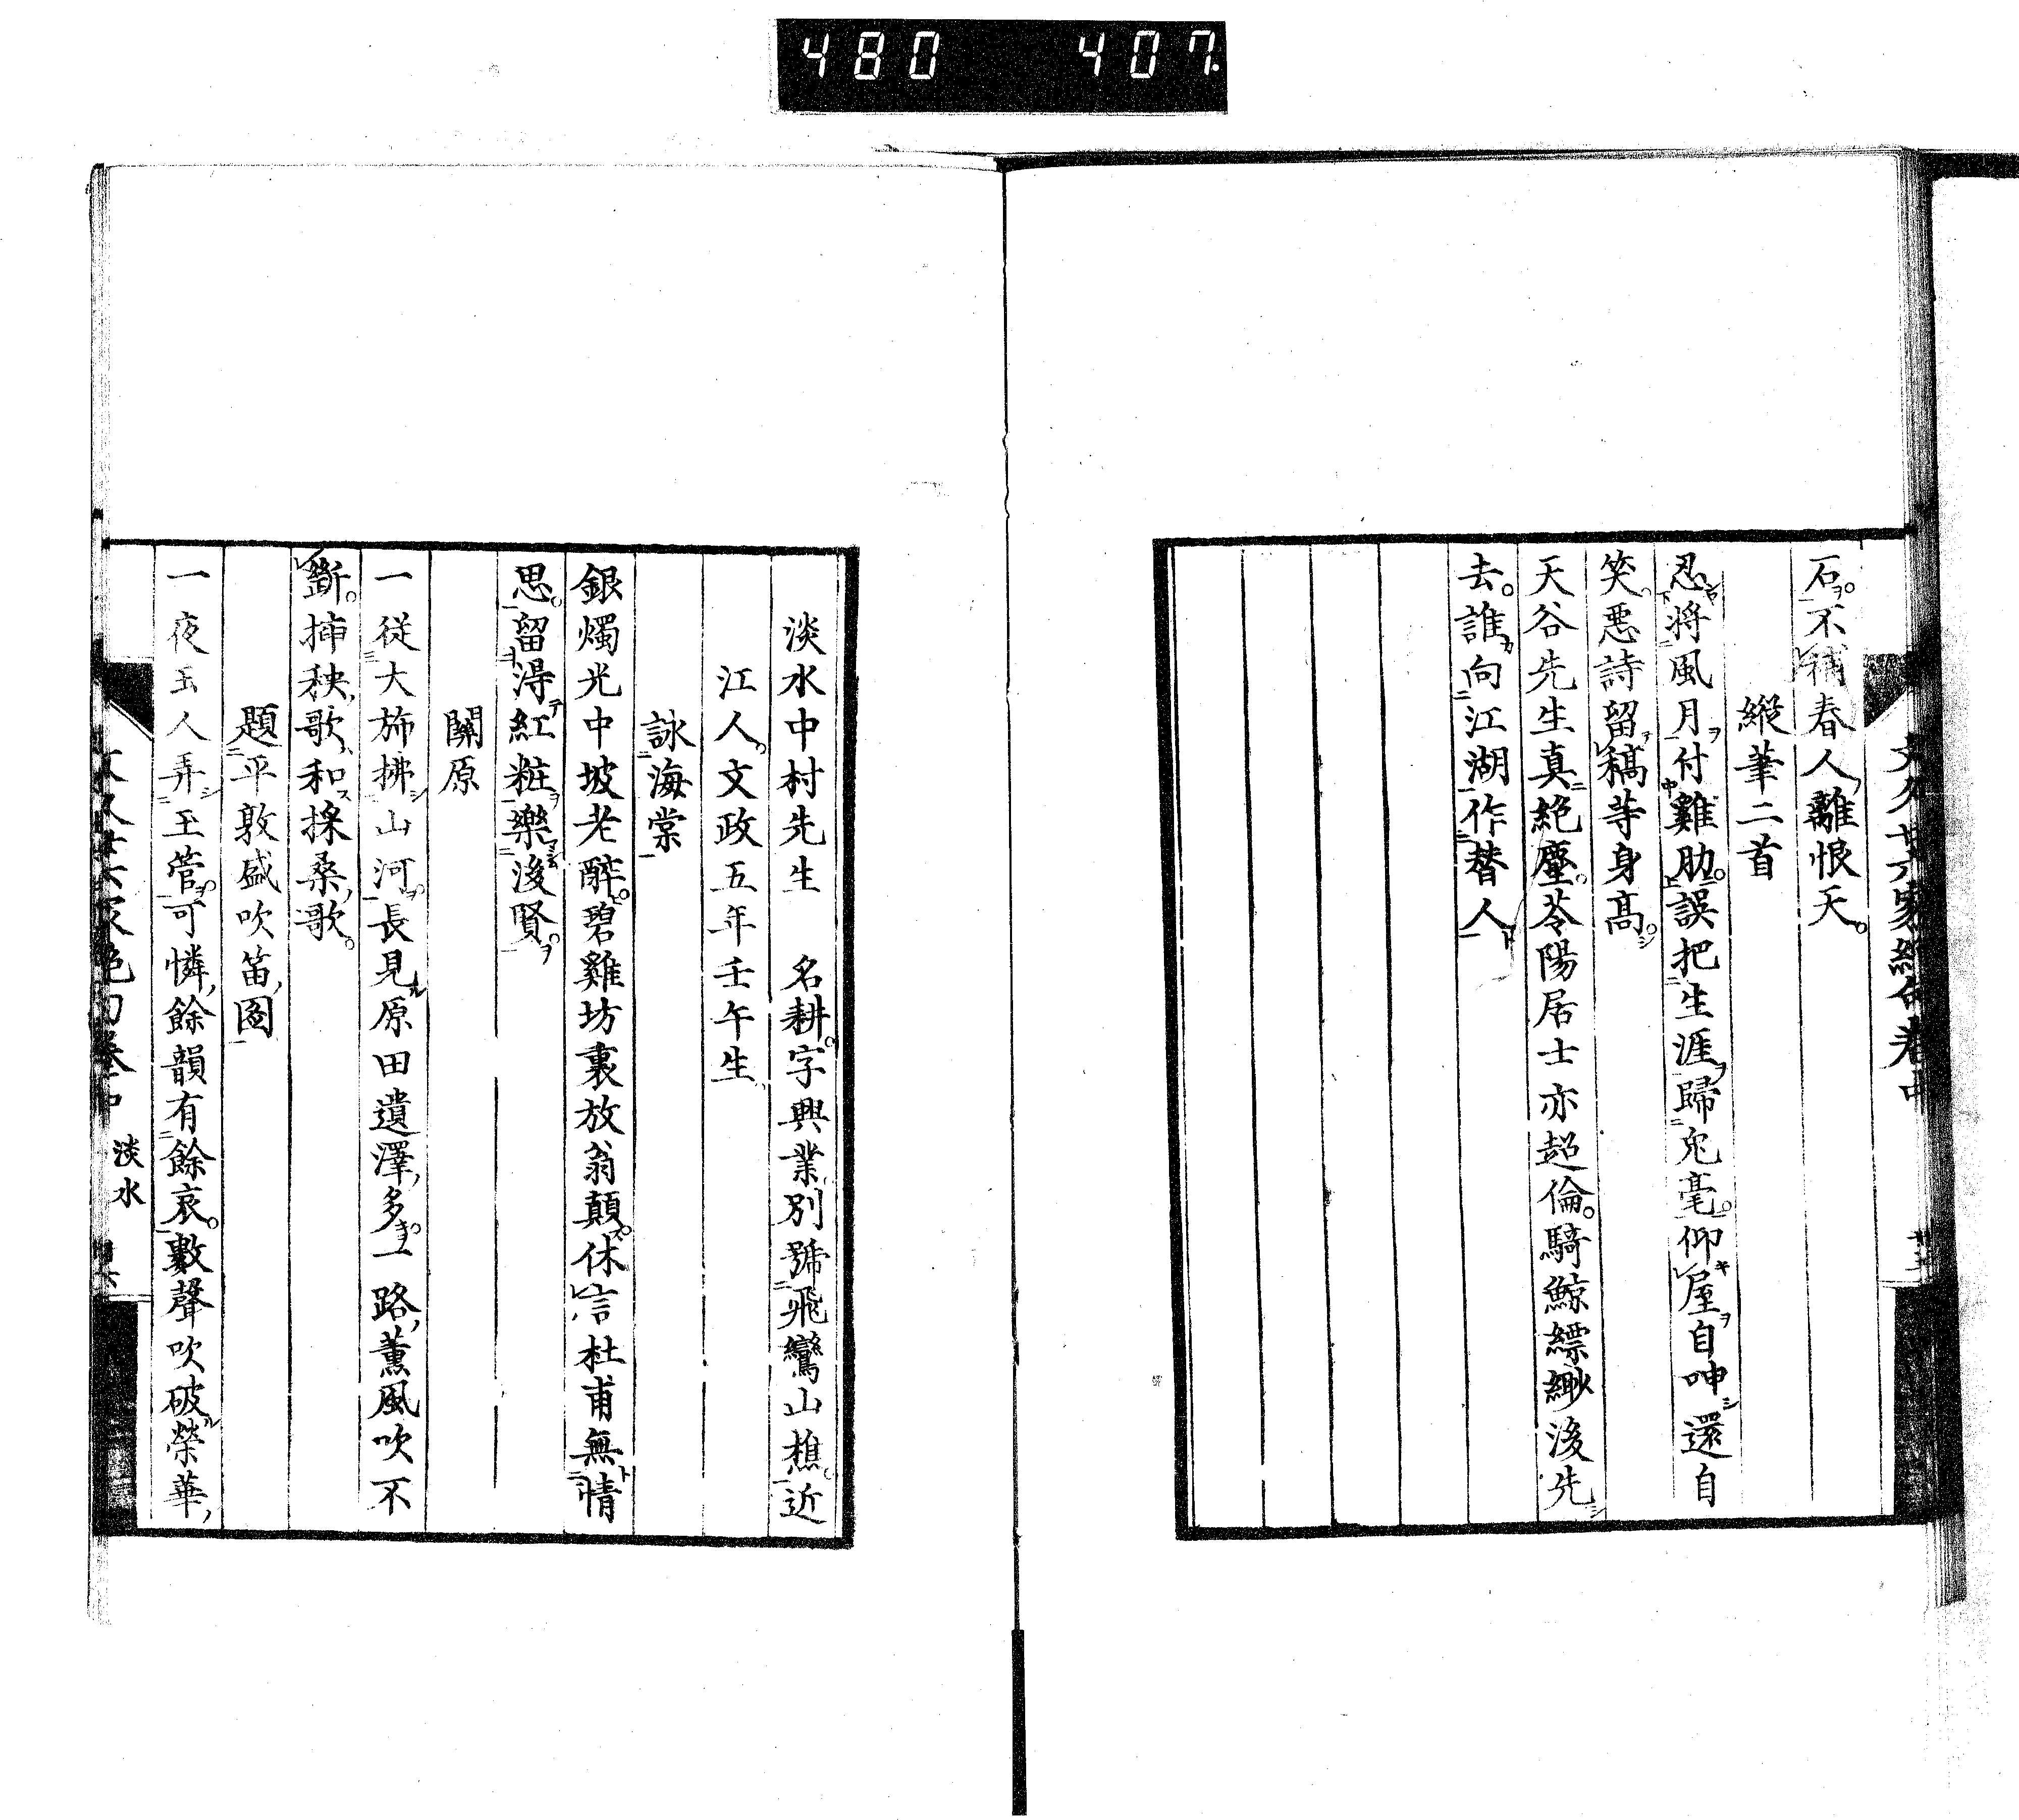 480 407
石不補春人離恨天
縱筆二首
忍將風月付雞肋誤把生涯歸兔毫仰屋自呻還自
笑惡詩留稿等身高
天谷先生真絕塵苓陽居士亦超倫騎鯨縹緲後先
去誰向江湖作替人
淡水中村先生 名耕字興業別號飛鸞山樵近
江人文政五年壬午生
詠海棠
銀燭光中坡老醉碧雞坊裏放翁顛休言杜甫無情
思留得紅粧樂後賢
關原
一從大旆拂山河長見原田遺澤多一路薰風吹不
斷插秧歌和採桑歌
題平敦盛吹笛圖
一夜玉人弄玉管可憐餘韻有餘哀數聲吹破榮華
淡水